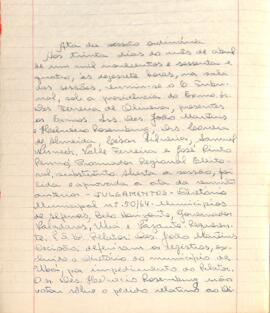 Ata da sessão ordinária
Aos trinta dias do mês de abril
de um mil novecentos e sessenta e
quatro, às dezessete horas, na sala
das sessões, reuniu-se o E. Tribunal,
sob a presidência do Exmo. Sr.
Des. Ferreira de Oliveira, presentes
os Exmos. Srs. Des. João Martins
e Helvécio Rosenburg, Drs.
de Almeida, César Silveira,
Valle Ferreira e José Pinto
Procurador Regional Eleitoral,
substituto. Aberta a sessão, foi
lida e aprovada a ata da sessão
anterior - JULGAMENTOS - Diretório
Municipal nº 90/64. Municípios
de Belo Horizonte, Governador
Valadares, Ubaí e
te. P.S.D. Relator Des. João Martins
Decisão: deferiram os registros, ex-
o diretório do município de
Ubaí, por impedimento do Relator.
O sr. Des. Helvécio Rosenburg não
votou sôbre o pedido relativo ao Di-